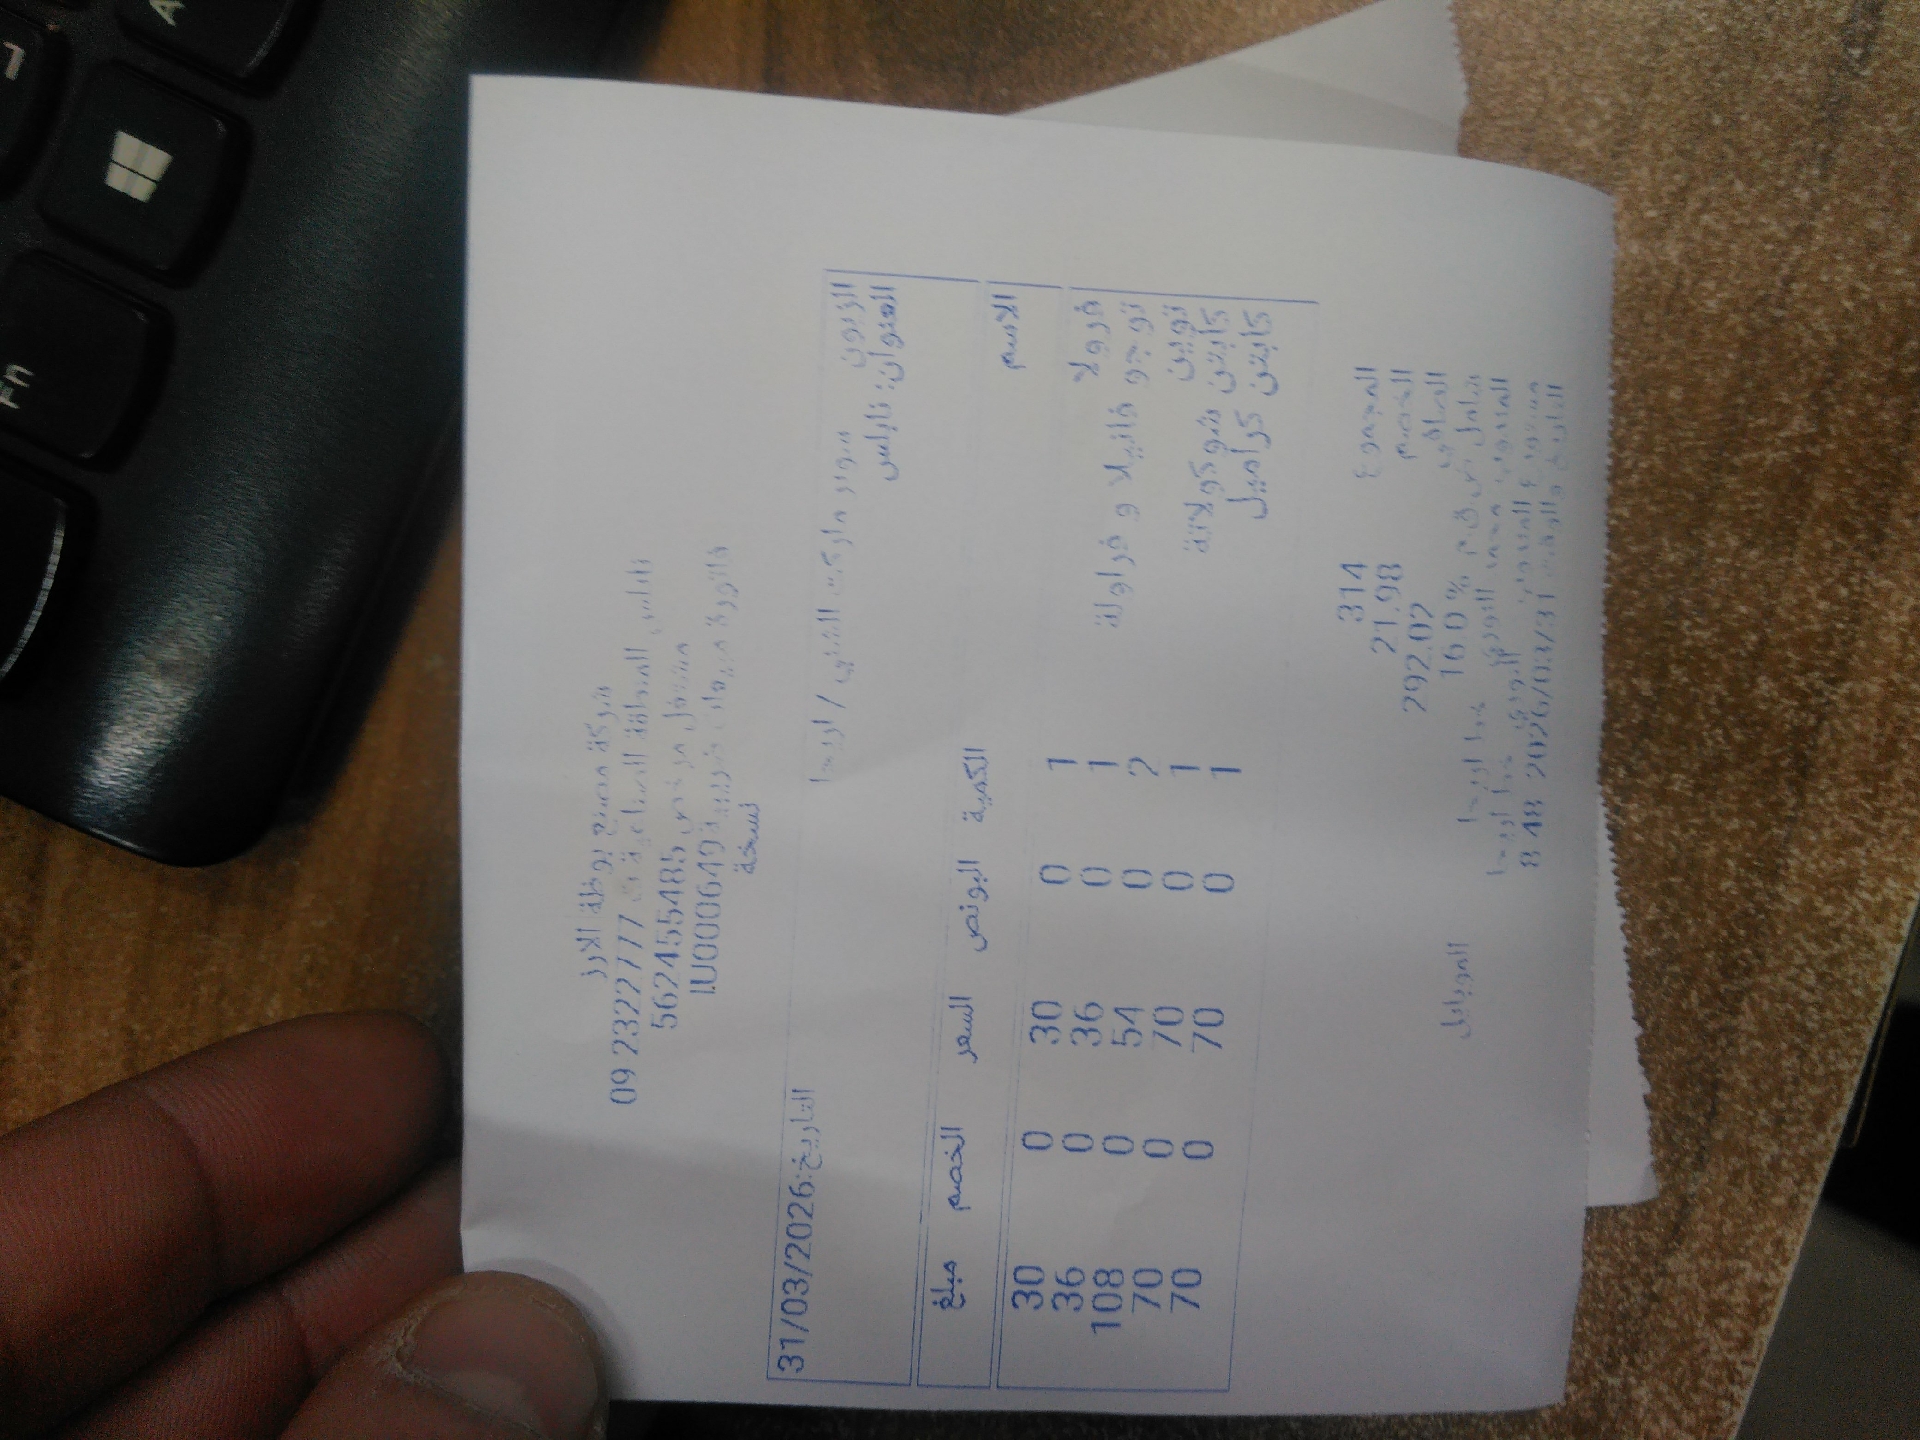 شركة مصنع بوظة الارز
نابلس المنطقة الصناعية ت 09 2322777
مشتغل مرخص 562455485
فاتورة مبيعات ضريبية I.U0000649
نسخة
التاريخ:31/03/2026
الزبون سوبر ماركت / اريحا
العنوان: نابلس
الاسم الكمية البونص السعر الخصم مبلغ
فرولا 1 0 30 0 30
توجو فانيلا و فراولة 1 0 36 0 36
توين 2 0 54 0 108
كابتن شوكولاتة 1 0 70 0 70
كابتن كراميل 1 0 70 0 70
المجموع 314
الخصم 21.98
الصافي 292.02
شامل ض ق م % 16.0
المندوب محمد اريحا الموبايل
مستودع المندوب اريحا
التاريخ والوقت 2026/03/31 8:48
A
Fn